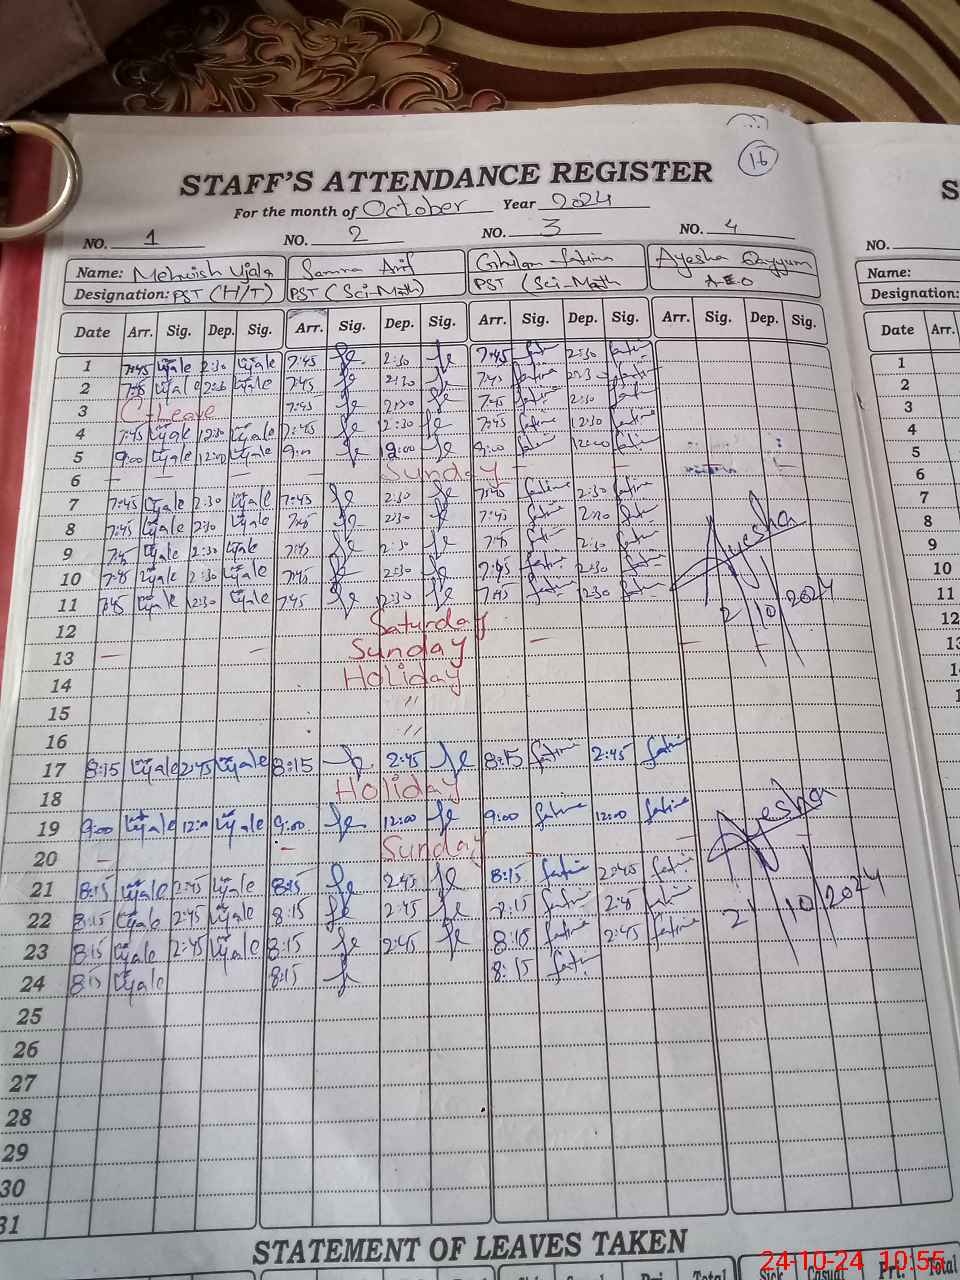 16
STAFF'S ATTENDANCE REGISTER
For the month of October Year 2024
NO. 1 NO. 2 NO. 3 NO. 4 NO.
Name: Mehwish Ujala Samra Arif Ghulam Fatima Ayesha Qayyum Name:
Designation: PST (H/T) PST (Sci-Math) PST (Sci-Math A.E.O Designation:
Date Arr. Sig. Dep. Sig. Arr. Sig. Dep. Sig. Arr. Sig. Dep. Sig. Arr. Sig. Dep. Sig. Date Arr.
1 7:45 Ujale 2:30 Ujale 7:45 2:30 7:45 fatima 2:30 fatima 1
2 7:45 Ujale 2:30 Ujale 7:45 2:30 7:45 fatima 2:30 fatima 2
3 C-Leave 7:45 2:30 7:45 fatima 2:30 fatima 3
4 7:45 Ujale 12:30 Ujale 7:45 12:30 7:45 fatima 12:30 fatima 4
5 9:00 Ujale 12:00 Ujale 9:00 12:00 9:00 fatima 12:00 fatima 5
6 — — — Sunday — — — — 6
7 7:45 Ujale 2:30 Ujale 7:45 2:30 7:45 fatima 2:30 fatima 7
8 7:45 Ujale 2:30 Ujale 7:45 2:30 7:45 fatima 2:30 fatima Ayesha 8
9 7:45 Ujale 2:30 Ujale 7:45 2:30 7:45 fatima 2:30 fatima 9
10 7:45 Ujale 2:30 Ujale 7:45 2:30 7:45 fatima 2:30 fatima 10
11 7:45 Ujale 12:30 Ujale 7:45 12:30 7:45 fatima 12:30 fatima 2/10/2024 11
12 Saturday 12
13 — — Sunday — — — 13
14 Holiday
15 "
16 "
17 8:15 Ujale 2:45 Ujale 8:15 2:45 8:15 fatima 2:45 fatima
18 Holiday
19 9:00 Ujale 12:00 Ujale 9:00 12:00 9:00 fatima 12:00 fatima Ayesha
20 — — Sunday — — —
21 8:15 Ujale 2:45 Ujale 8:15 2:45 8:15 fatima 2:45 fatima
22 8:15 Ujale 2:45 Ujale 8:15 2:45 8:15 fatima 2:45 fatima 21/10/2024
23 8:15 Ujale 2:45 Ujale 8:15 2:45 8:15 fatima 2:45 fatima
24 8:15 Ujale 8:15 8:15 fatima
25
26
27
28
29
30
31
STATEMENT OF LEAVES TAKEN
Total Sick Casual Pri. Total
24-10-24 10:55